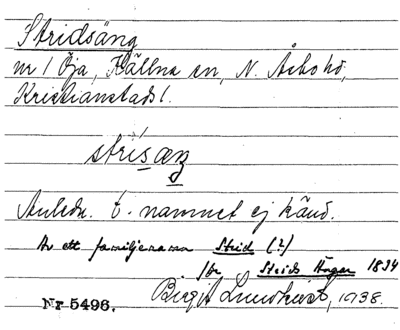 Stridsäng
nr 1 Öja, Källna sn, N. Åsbo hd,
Kristianstads l.
strísæŋ
Anledn. t. namnet ej känd.
Av ett familjenamn Strid (?)
jfr Strids Hagen 1834
Birgit Lundkvist, 1938.
Nr 5496.